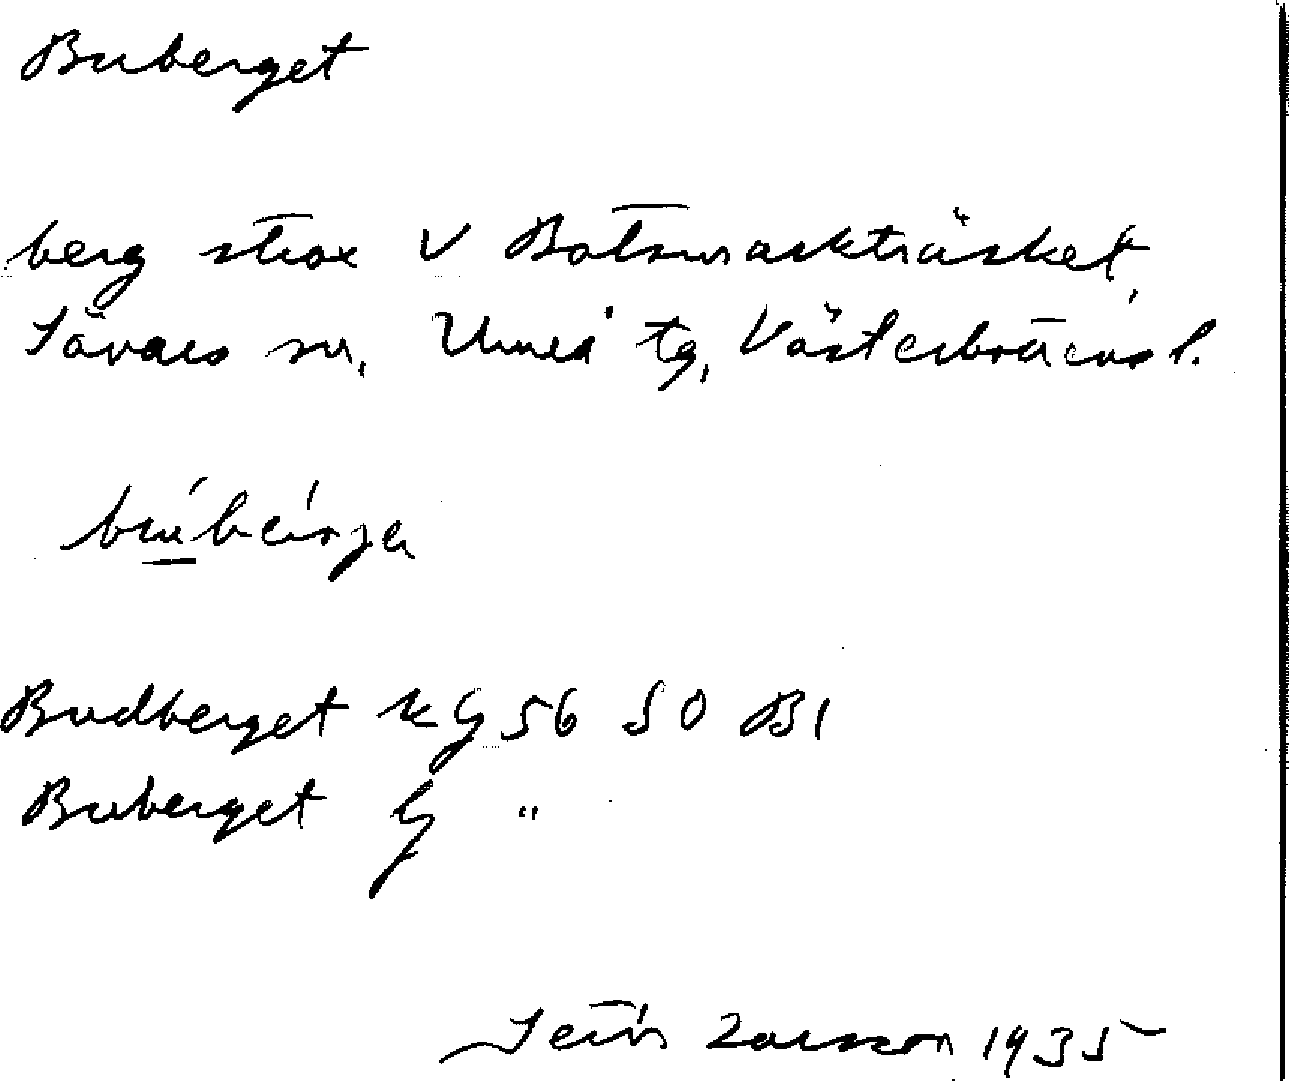 Buberget
berg strax V Botsmarkträsket,
Sävars sn, Umeå tg, Västerbottens l.
Budberget kG 56 SO B1
Buberget G "
Larsson 1935